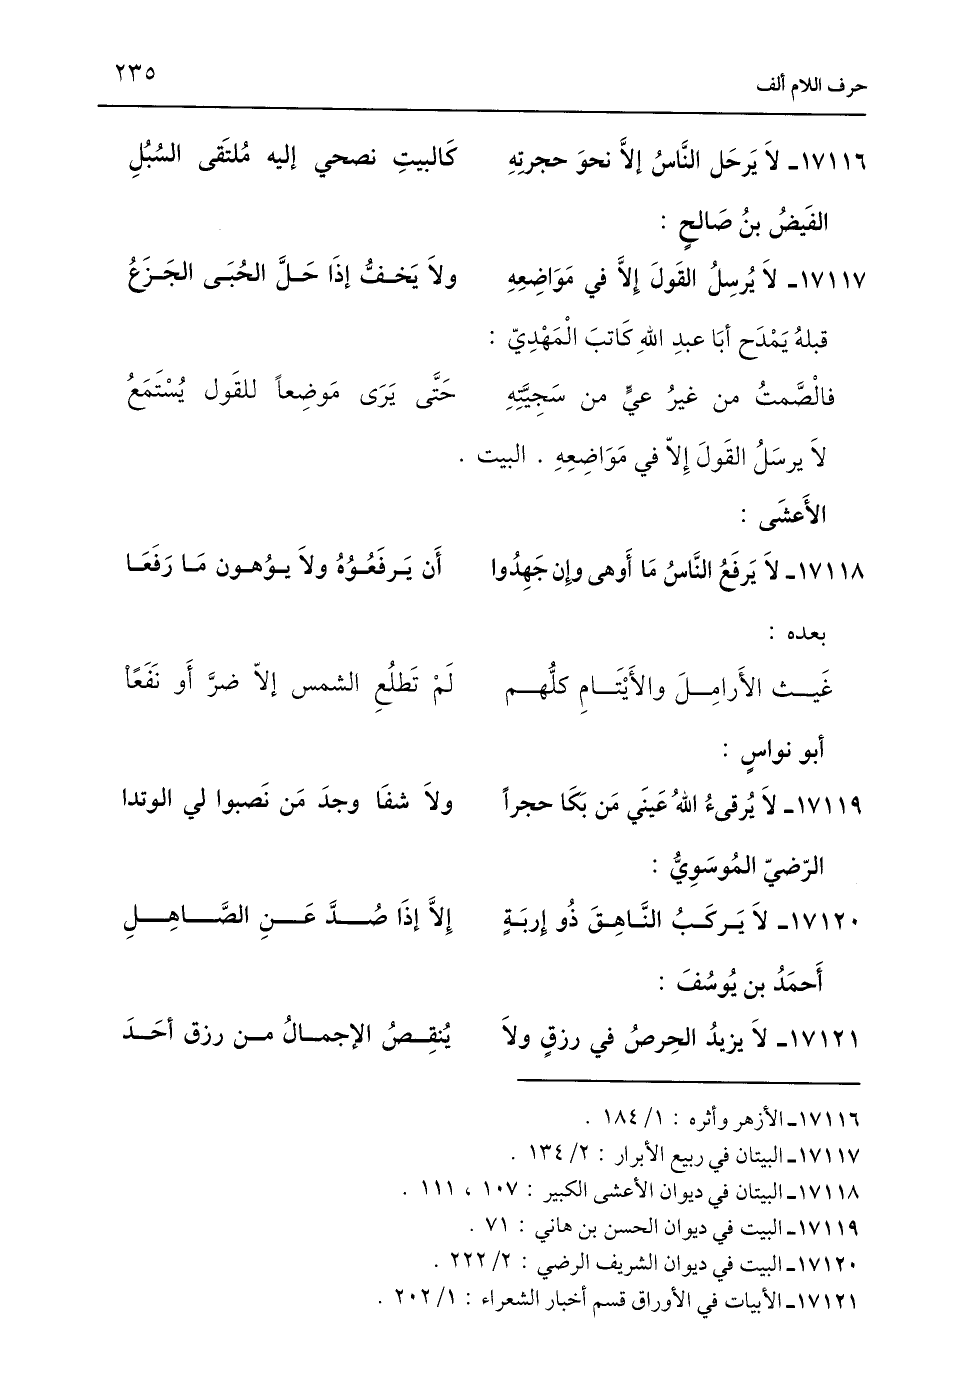 حرف اللام ألف ٢٣٥
١٧١١٦ـ لاَ يَرحَل النَّاسُ إلاَّ نحوَ حجرتِهِ كَالبيتِ نصحي إليه مُلتَقى السُبُلِ
الفَيضُ بنُ صَالحٍ :
١٧١١٧ـ لاَ يُرسِلُ القَولَ إلاَّ في مَوَاضِعِهِ ولاَ يَخـفُّ إذَا حَـلَّ الحُبَـى الجَـزَعُ
قبلهُ يَمْدَح أبَا عبدِ اللهِ كَاتبَ الْمَهْدِيّ :
فالْصَّمتُ من غيرُ عيٍّ من سَجِيَّتِهِ حَتَّى يَرَى مَوضِعاً للقَول يُسْتَمَعُ
لاَ يرسَلُ القَولَ إلاّ في مَوَاضِعِهِ . البيت .
الأَعشَى :
١٧١١٨ـ لاَ يَرفَعُ النَّاسُ مَا أَوهى وإن جَهِدُوا أَن يَـرفَعُـوُهُ ولاَ يـوُهـون مَـا رَفَعَـا
بعده :
غَيـــث الأَرامِــلَ والأَيْتَــامِ كلُّهــم لَمْ تَطلُعِ الشمس إلاّ ضرَّ أَو نَفَعًاْ
أبو نواسٍ :
١٧١١٩ـ لاَ يُرقىءُ اللهُ عَيني مَن بَكَا حجراً ولاَ شفَا وجدَ مَن نَصبوا لي الوتدا
الرّضيّ المُوسَوِيُّ :
١٧١٢٠ـ لاَ يَـركَـبُ النَّـاهِـقَ ذُو إربَـةٍ إلاَّ إذَا صُـــدَّ عَـــنِ الصَّـــاهِـــلِ
أَحمَدُ بن يُوسُفَ :
١٧١٢١ـ لاَ يزيدُ الحِرصُ في رزقٍ ولاَ يُنقِـصُ الإجمـالُ مـن رزق أحَـدَ
١٧١١٦ـ الأزهر وأثره : ١/ ١٨٤ .
١٧١١٧ـ البيتان في ربيع الأبرار : ٢/ ١٣٤ .
١٧١١٨ـ البيتان في ديوان الأعشى الكبير : ١٠٧ ، ١١١ .
١٧١١٩ـ البيت في ديوان الحسن بن هاني : ٧١ .
١٧١٢٠ـ البيت في ديوان الشريف الرضي : ٢/ ٢٢٢ .
١٧١٢١ـ الأبيات في الأوراق قسم أخبار الشعراء : ١/ ٢٠٢ .